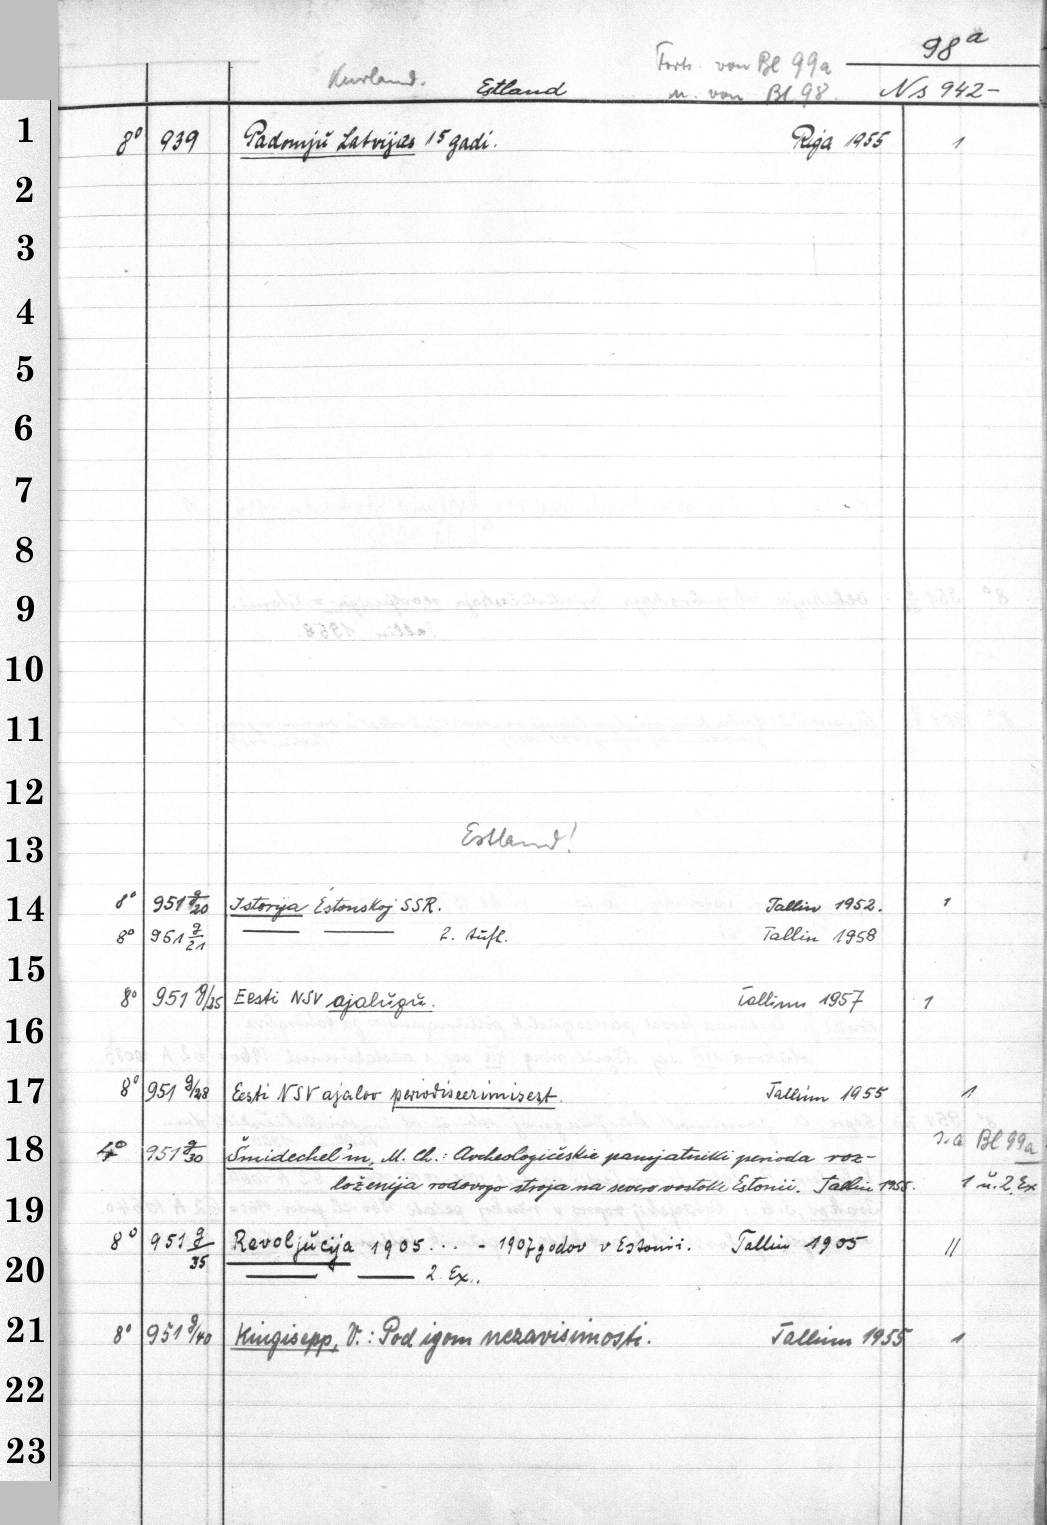 98a
Kurland. Estland Forts. von Bl 99a
u. von Bl 98. Ns 942-
1 8° 939 Padomjŭ Latvijas 15 gadi. Riga 1955 1
2
3
4
5
6
7
8
9
10
11
12
13 Estland!
14 8° 951 g/20 Istorija Éstonskoj SSR. Tallin 1952. 1
8° 951 g/21 — — 2. Aufl. Tallin 1958
15
8° 951 g/25 Eesti NSV ajalŭgŭ. Tallinn 1957 1
16
17 8° 951 g/28 Eesti NSV ajaloo periodiseerimisest. Tallinn 1955 1
18 4° 951 g/30 Šmidechel'm, M. Ch.: Archeologičeskie pamjatniki perioda raz- s.a Bl 99a
loženija rodovogo stroja na severo vostoke Estonii. Tallin 1955. 1 u. 2. Ex
19
8° 951 g/35 Revoljŭcija 1905... - 1907 godov v Estonii. Tallin 1905 //
20 — — 2 Ex..
21 8° 951 g/40 Kingisepp, V.: Pod igom nezavisimosti. Tallinn 1955 1
22
23